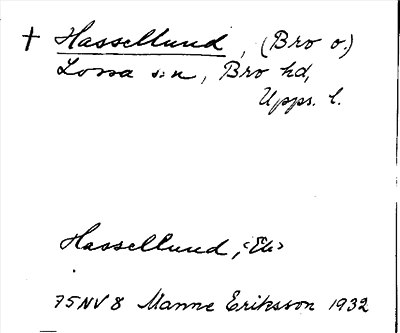 † Hassellund, (Bro o.)
Lossa s:n, Bro hd,
Upps. l.
Hassellund, <Eh>
75NV8 Manne Eriksson 1932